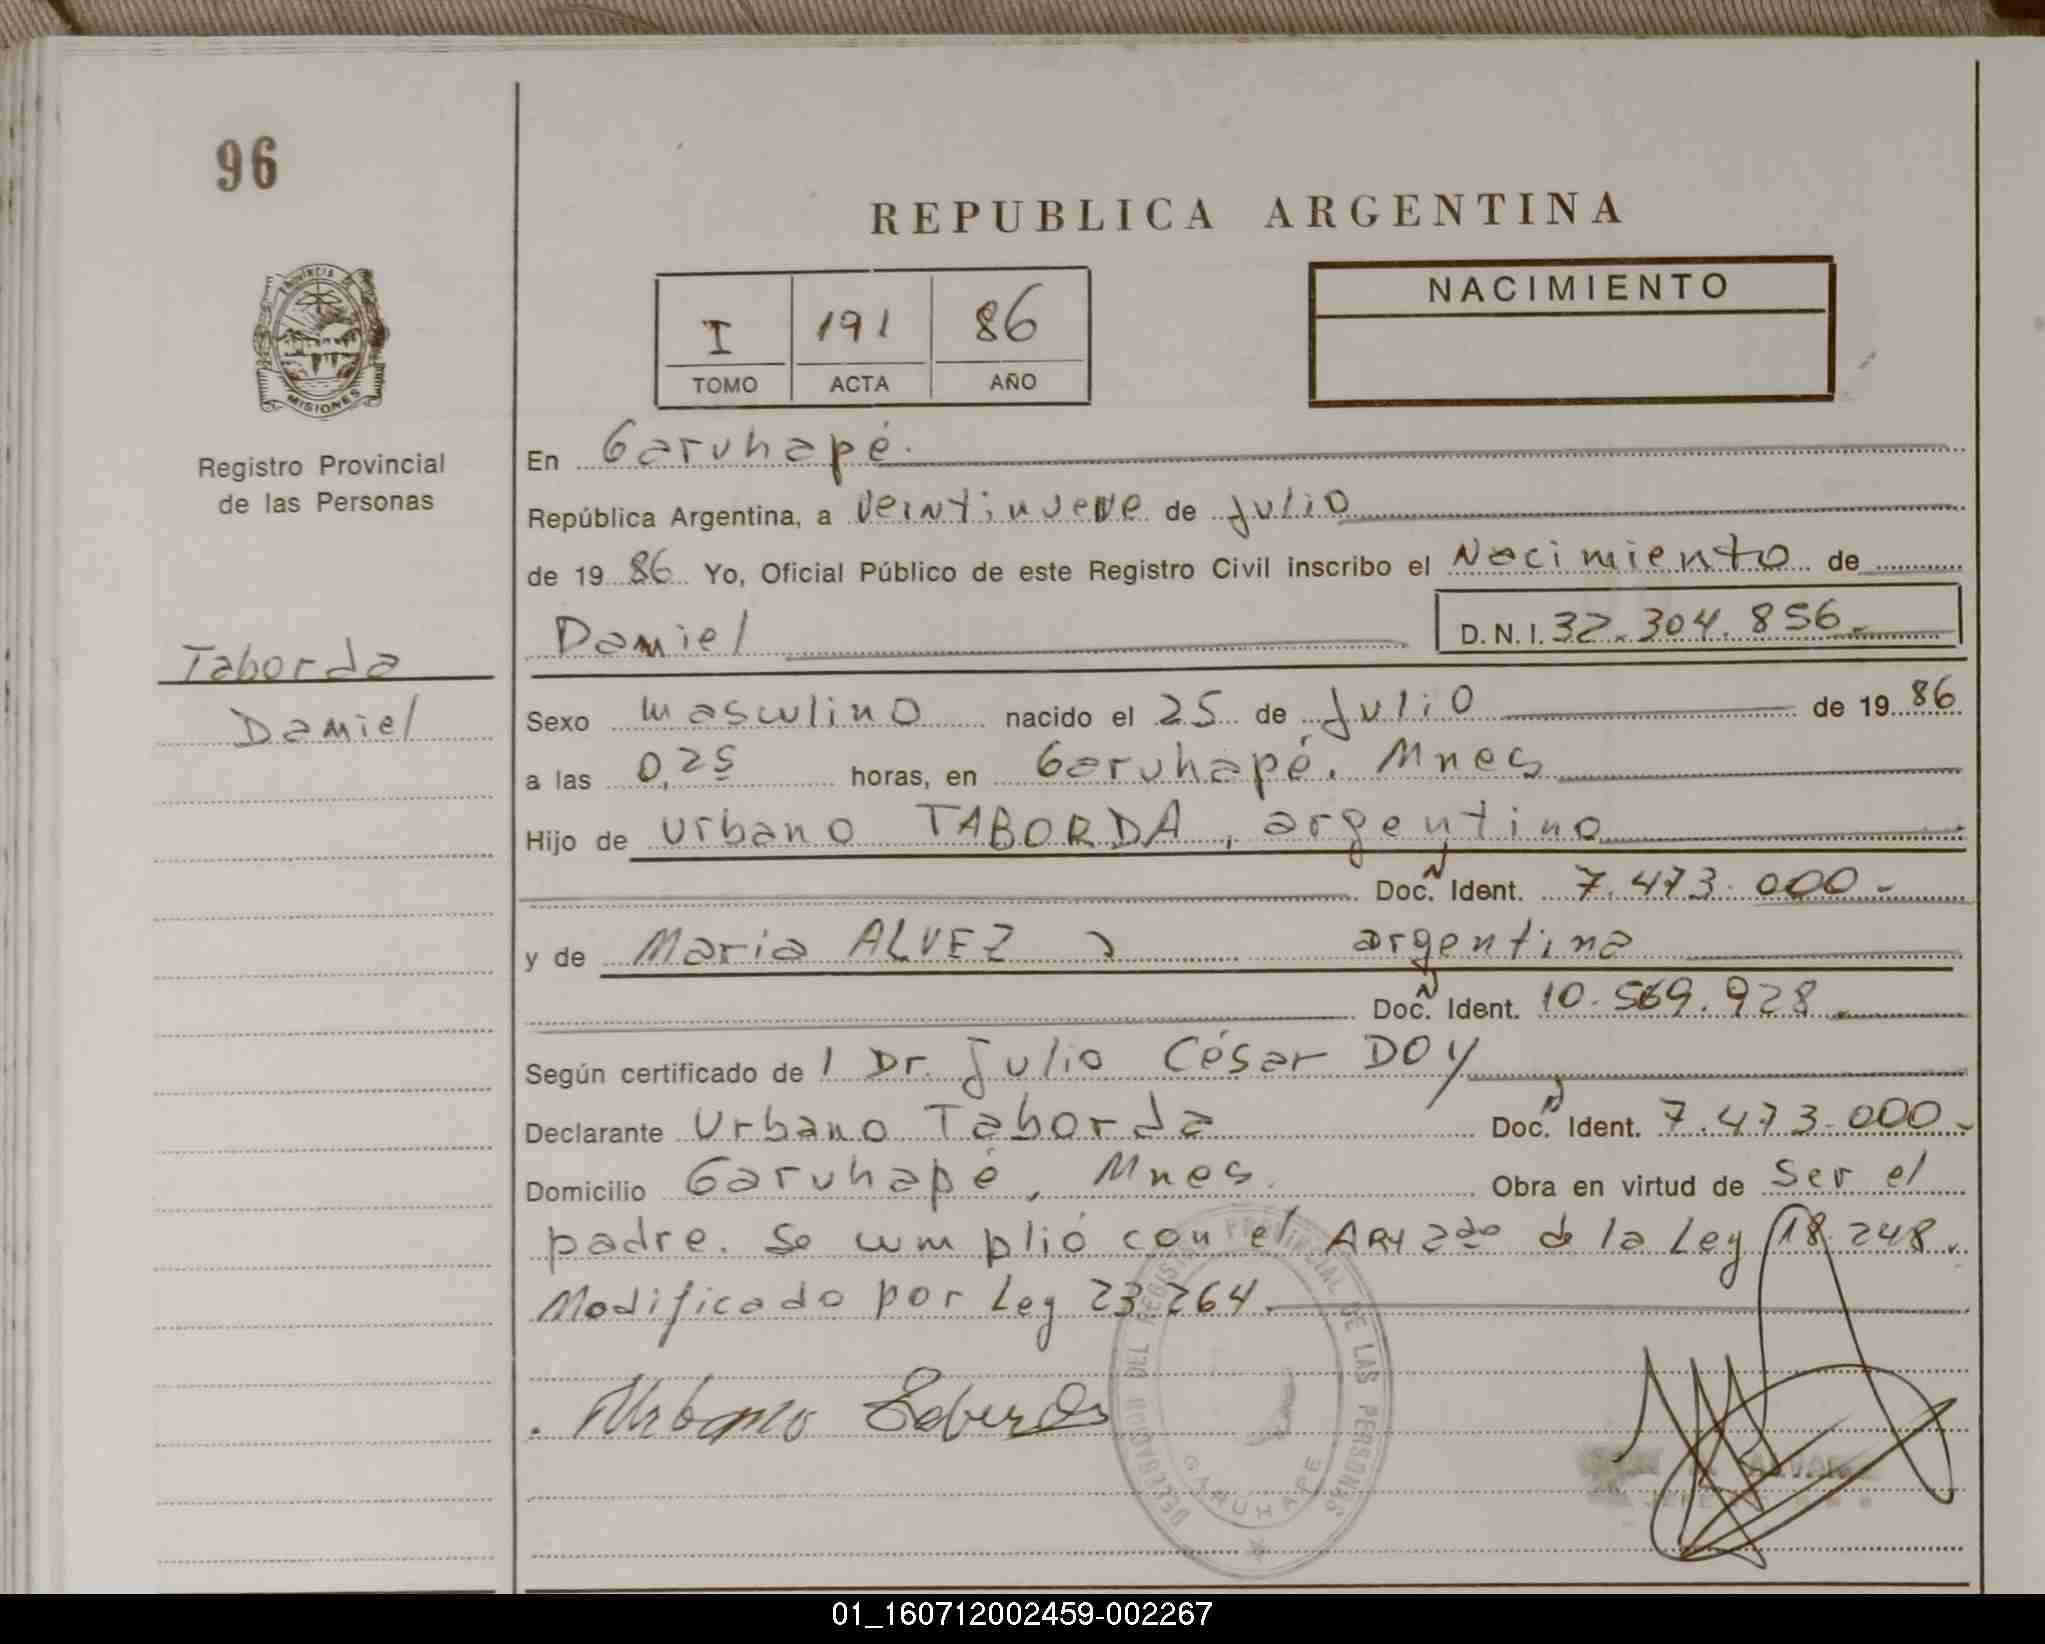 96
REPUBLICA ARGENTINA
PROVINCIA DE
MISIONES
Registro Provincial
de las Personas
I 191 86
TOMO ACTA AÑO
NACIMIENTO
En Garuhapé.
República Argentina, a veintinueve de Julio
de 19 86 Yo, Oficial Público de este Registro Civil inscribo el Nacimiento de
Daniel D.N.I. 32.304.856.-
Taborda
Daniel
Sexo masculino nacido el 25 de Julio de 19 86
a las 0,25 horas, en Garuhapé, Mnes
Hijo de Urbano TABORDA, argentino
Doc. N Ident. 7.473.000-
y de Maria ALVEZ, argentina
Doc. N Ident. 10.569.928.
Según certificado de l Dr. Julio César DOY
Declarante Urbano Taborda Doc. N Ident. 7.473.000.-
Domicilio Garuhapé, Mnes. Obra en virtud de Ser el
padre. Se cumplió con el Art 2do de la Ley 18.248.
Modificado por Ley 23.264.
Urbano Taborda
DELEGACION DEL REGISTRO PROVINCIAL DE LAS PERSONAS
GARUHAPE
01_160712002459-002267